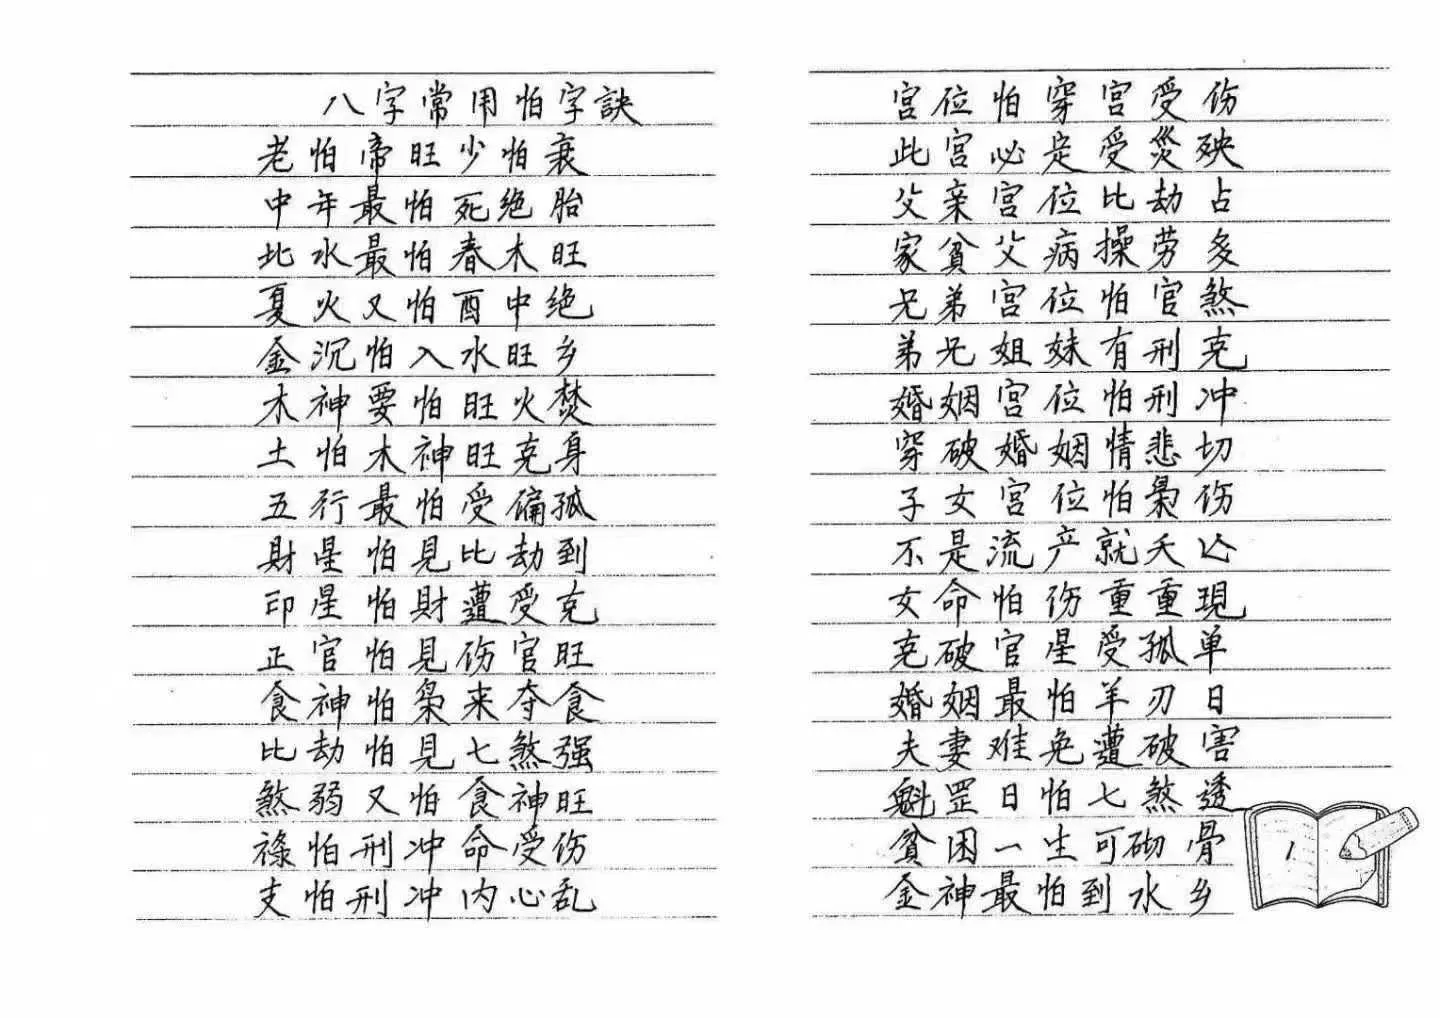 八字常用怕字訣
老怕帝旺少怕衰
中年最怕死绝胎
北水最怕春木旺
夏火又怕酉中绝
金沉怕入水旺乡
木神要怕旺火焚
土怕木神旺克身
五行最怕受偏孤
財星怕見比劫到
印星怕財遭受克
正官怕見伤官旺
食神怕枭来夺食
比劫怕見七煞强
煞弱又怕食神旺
祿怕刑冲命受伤
支怕刑冲内心乱
宫位怕穿宫受伤
此宫必定受災殃
父亲宫位比劫占
家貧父病操劳多
兄弟宫位怕官煞
弟兄姐妹有刑克
婚姻宫位怕刑冲
穿破婚姻情悲切
子女宫位怕梟伤
不是流产就夭亡
女命怕伤重重現
克破官星受孤单
婚姻最怕羊刃日
夫妻难免遭破害
魁罡日怕七煞透
貧困一生可砌骨
金神最怕到水乡
1